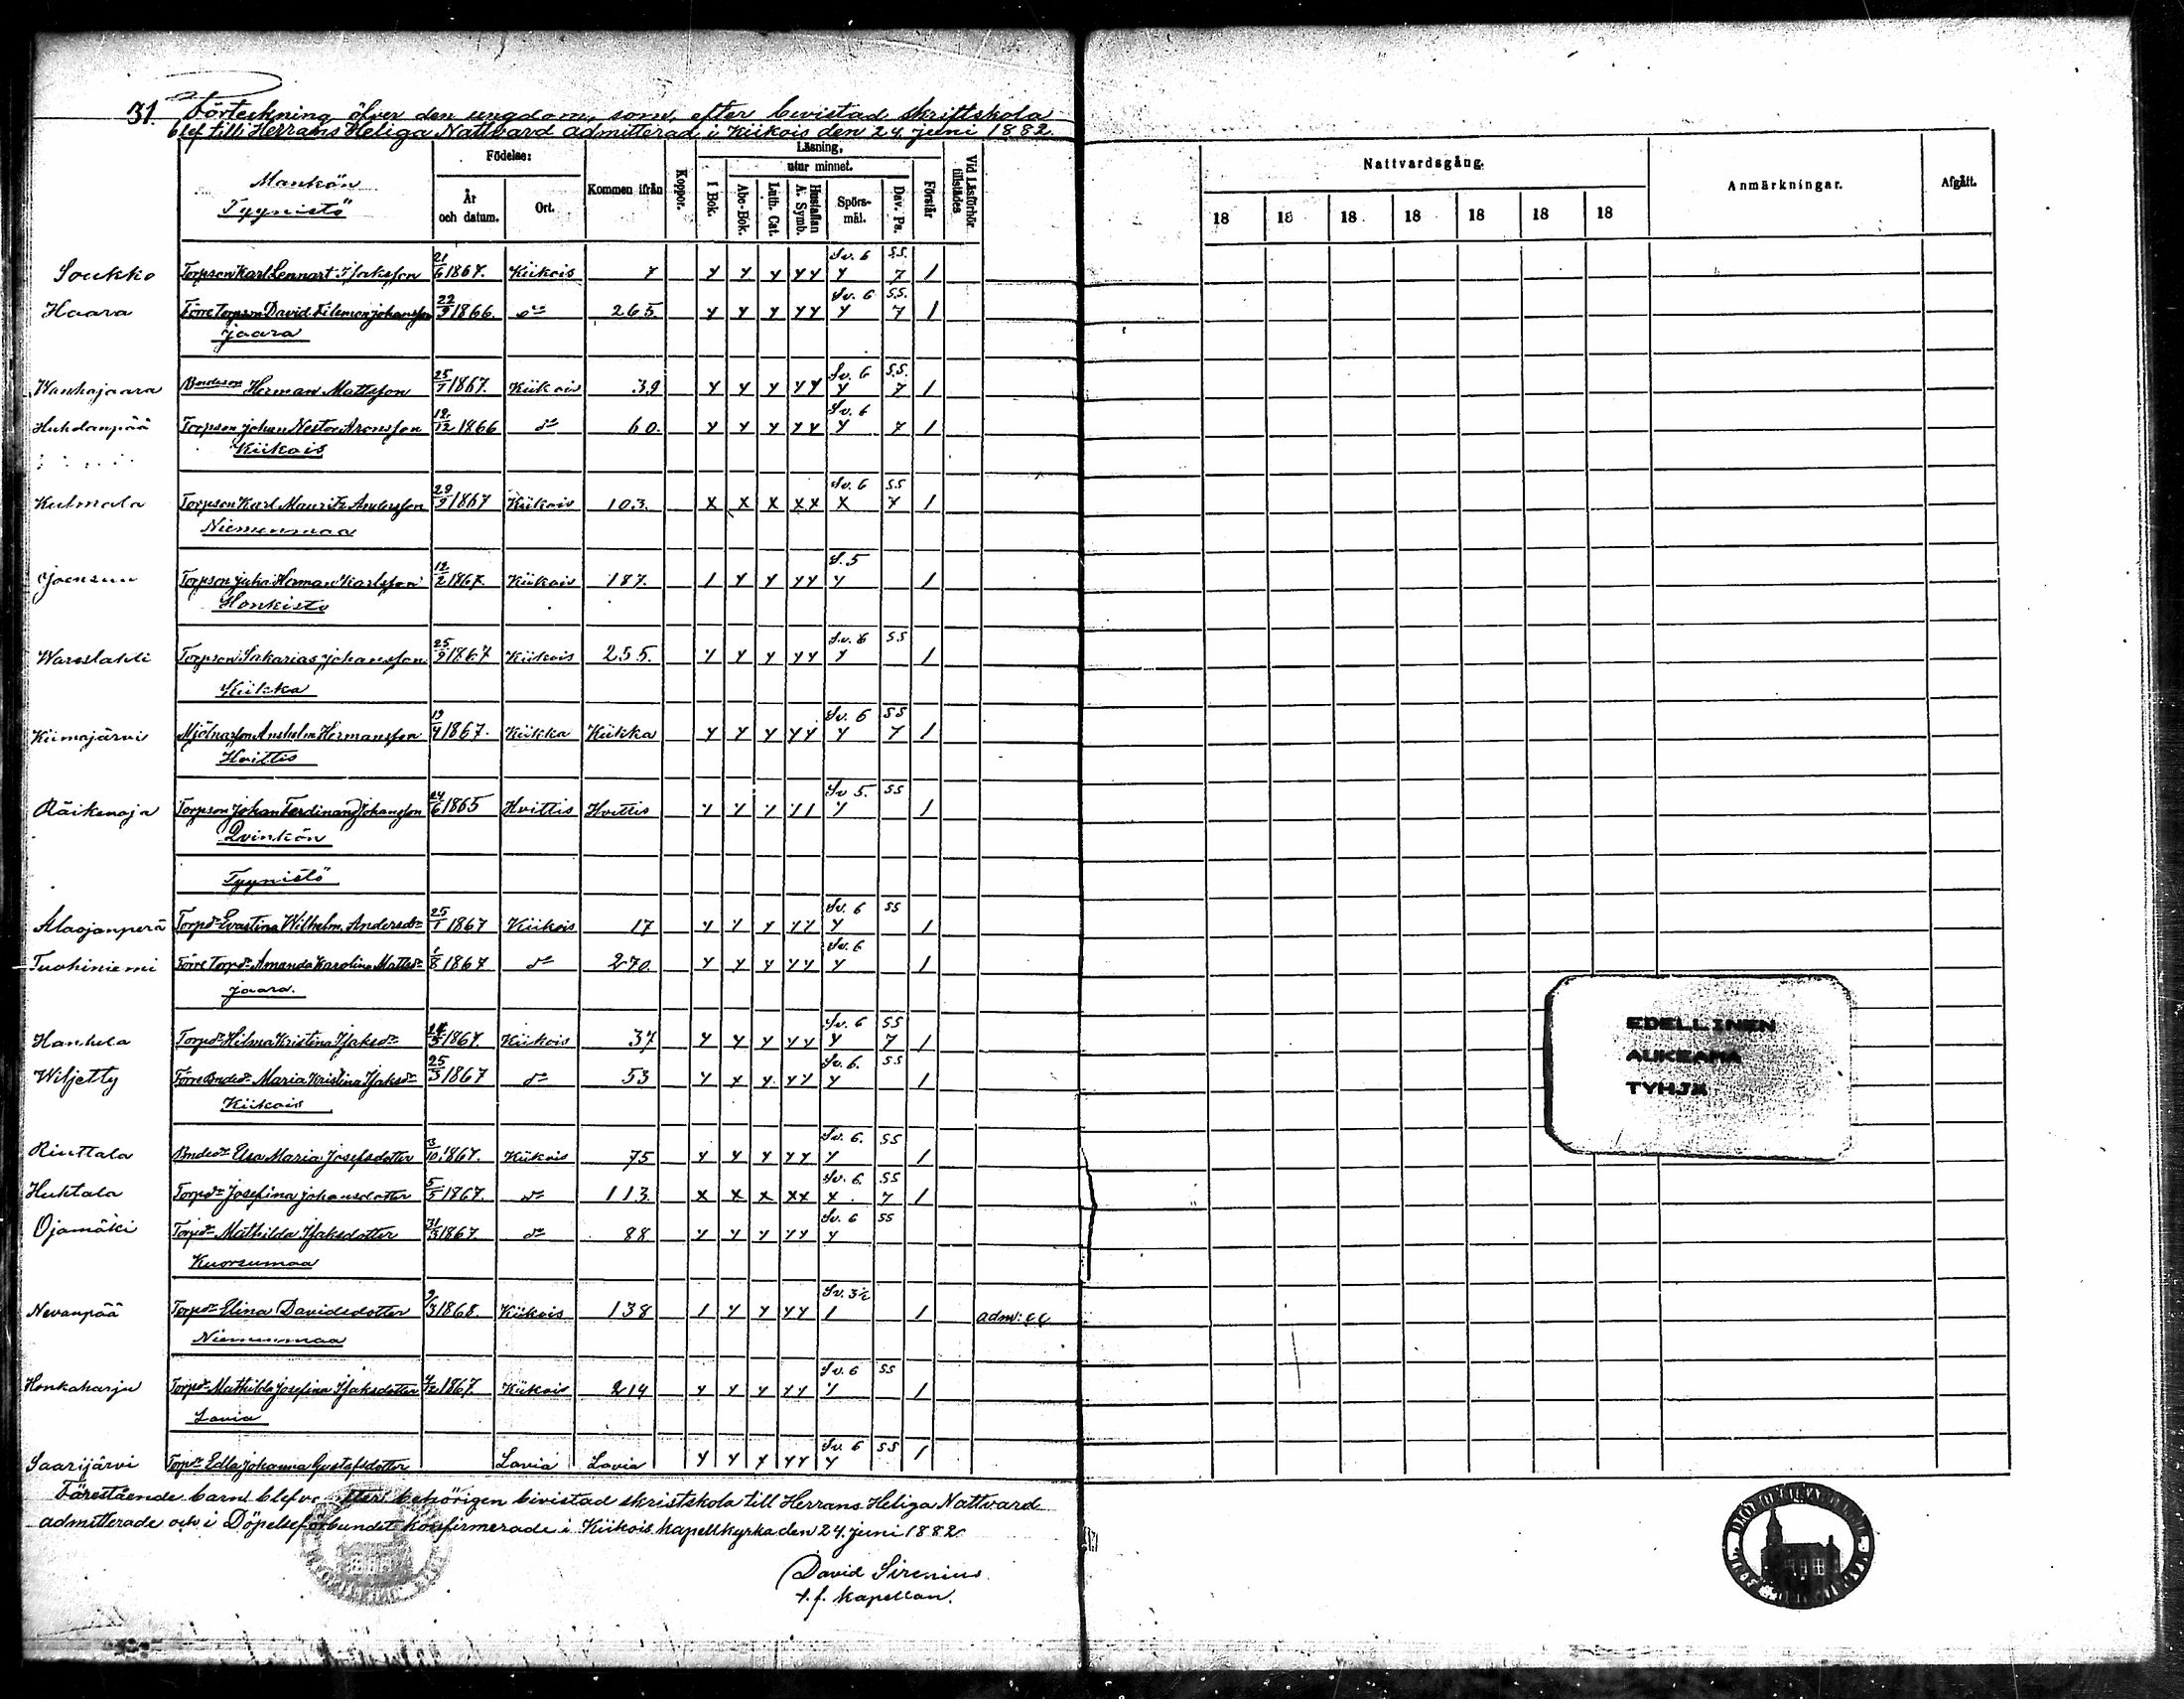 31. Förteckning öfver den ungdom, som, efter bevistad skriftskola
blef till Herrans Heliga Nattvard admitterad i Kiikois den 24 juni 1882.
Mankön
Tyynistö
Födelse:
År och datum.
Ort.
Kommen ifrån
Koppor.
Läsning,
utur minnet.
I Bok.
Abc-Bok.
Luth. Cat.
Hustaflan A. Symb.
Spörs-mål.
Dav. Ps.
Förstår
Vid Läsförhör tillstädes
Nattvardsgång.
18 18 18 18 18 18 18
Anmärkningar.
Afgått.
Sv. 6 SS.
Soukko Torpson Karl Lennart Isaksson 21/6 1867. Kiikois 7 y y y y y y 7 1
Sv. 6 SS.
Haara Förre Torpson David Filemon Johansson 22/9 1866. do 265. y y y y y y 7 1
Jaara
Sv. 6 SS.
Wanhajaara Bondeson Herman Mattsson 25/7 1867. Kiikois 39 y y y y y y 7 1
Sv. 6
Huhdanpää Torpson Johan Nestor Aronsson 12/12 1866 do 60. y y y y y y 7 1
Kiikois
Sv. 6 SS
Kulmala Torpson Karl Mauritz Andersson 29/9 1867 Kiikois 103. x x x x x x 7 1
Niemenmaa
S. 5
Joensuu Torpson Juho Herman Karlsson 12/2 1867. Kiikois 187. 1 y y y y y 1
Honkisto
Sv. 6 SS
Wareslahti Torpson Sakarias Johansson 25/9 1867 Kiikois 255. y y y y y y 1
Kiikka
Sv. 6 SS
Kiimajärvi Mjölnarson Anshelm Hermansson 19/4 1867. Kiikka Kiikka y y y y y y 7 1
Hvittis
Sv 5. SS
Räikenoja Torpson Johan Ferdinand Johansson 24/6 1865 Hvittis Hvittis y y y 1 1 y 1
Qvinkön
Tyynistö
Sv. 6 SS
Alaojanperä Torpdr Evastina Wilhelm. Andersdr 25/1 1867 Kiikois 17 y y y y y y 1
Sv. 6
Tuohiniemi Förre Torpdr Amanda Karolina Mattsdr 1/8 1867 do 270. y y y y y y 1
Jaara.
Sv. 6 SS
Hanhela Torpdr Hilma Kristina Isaksdr 1867. Kiikois 37 y y y y y y 7 1
Sv. 6. SS
Wiljetty Förre Bondedr Maria Kristina Isaksdr 25/3 1867 do 53 y x y y y y 1
Kiikois
Sv. 6. SS
Rinttala Bondedr Elsa Maria Josefsdotter 3/10 1867. Kiikois 75 y y y y y y 1
Sv. 6. SS
Huhtala Torpdr Josefina Johansdotter 5/5 1867. do 113. x x x x x x 7 1
Sv. 6 SS
Ojamäki Torpdr Mathilda Isaksdotter 31/3 1867. do 88 y y y y y y
Kuorsumaa
Sv. 3½
Nevanpää Torpdr Elina Davidsdotter 9/3 1868. Kiikois 138 1 y y y y 1 1
Niemenmaa
Sv. 6 SS
Honkaharju Torpdr Mathilda Josefina Isaksdotter 4/12 1867. Kiikois 214 y y y y y y 1
Lavia
Sv. 6 SS
Saarijärvi Torpdr Edla Johanna Gustafsdotter Lavia Lavia y y y y y y 1
Förestående barn blefvo efter behörigen bivistad skriftskola till Herrans Heliga Nattvard
admitterade och i Döpelseförbundet konfirmerade i Kiikois kapellkyrka den 24. juni 1882
David Sirenius.
t. f. kapellan.
EDELLINEN
AUKEAMA
TYHJÄ